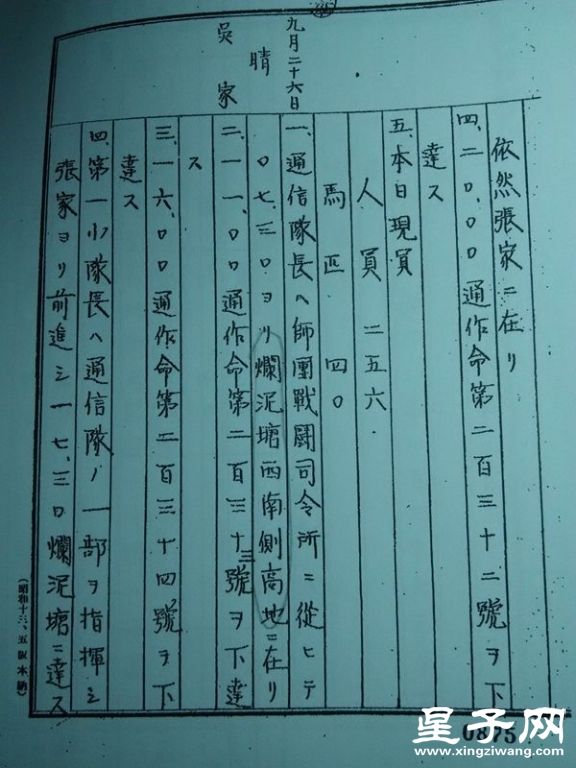 依然張家ニ在リ
四、二〇、〇〇通作命第二百三十二號ヲ下
達ス
五、本日現員
人員 二五六
馬匹 四〇
九月二十六日
晴
吳家
一、通信隊長ハ師團戰鬪司令所ニ從ヒテ
〇七、三〇ヨリ爛泥塘西南側高地ニ在リ
二、一一、〇〇通作命第二百三十三號ヲ下達
ス
三、一六、〇〇通作命第二百三十四號ヲ下
達ス
四、第一小隊長ハ通信隊ノ一部ヲ指揮シ
張家ヨリ前進シ一七、三〇爛泥塘ニ達ス
(昭和十三、五阪本納)
0875
星子网
www.xingziwang.com